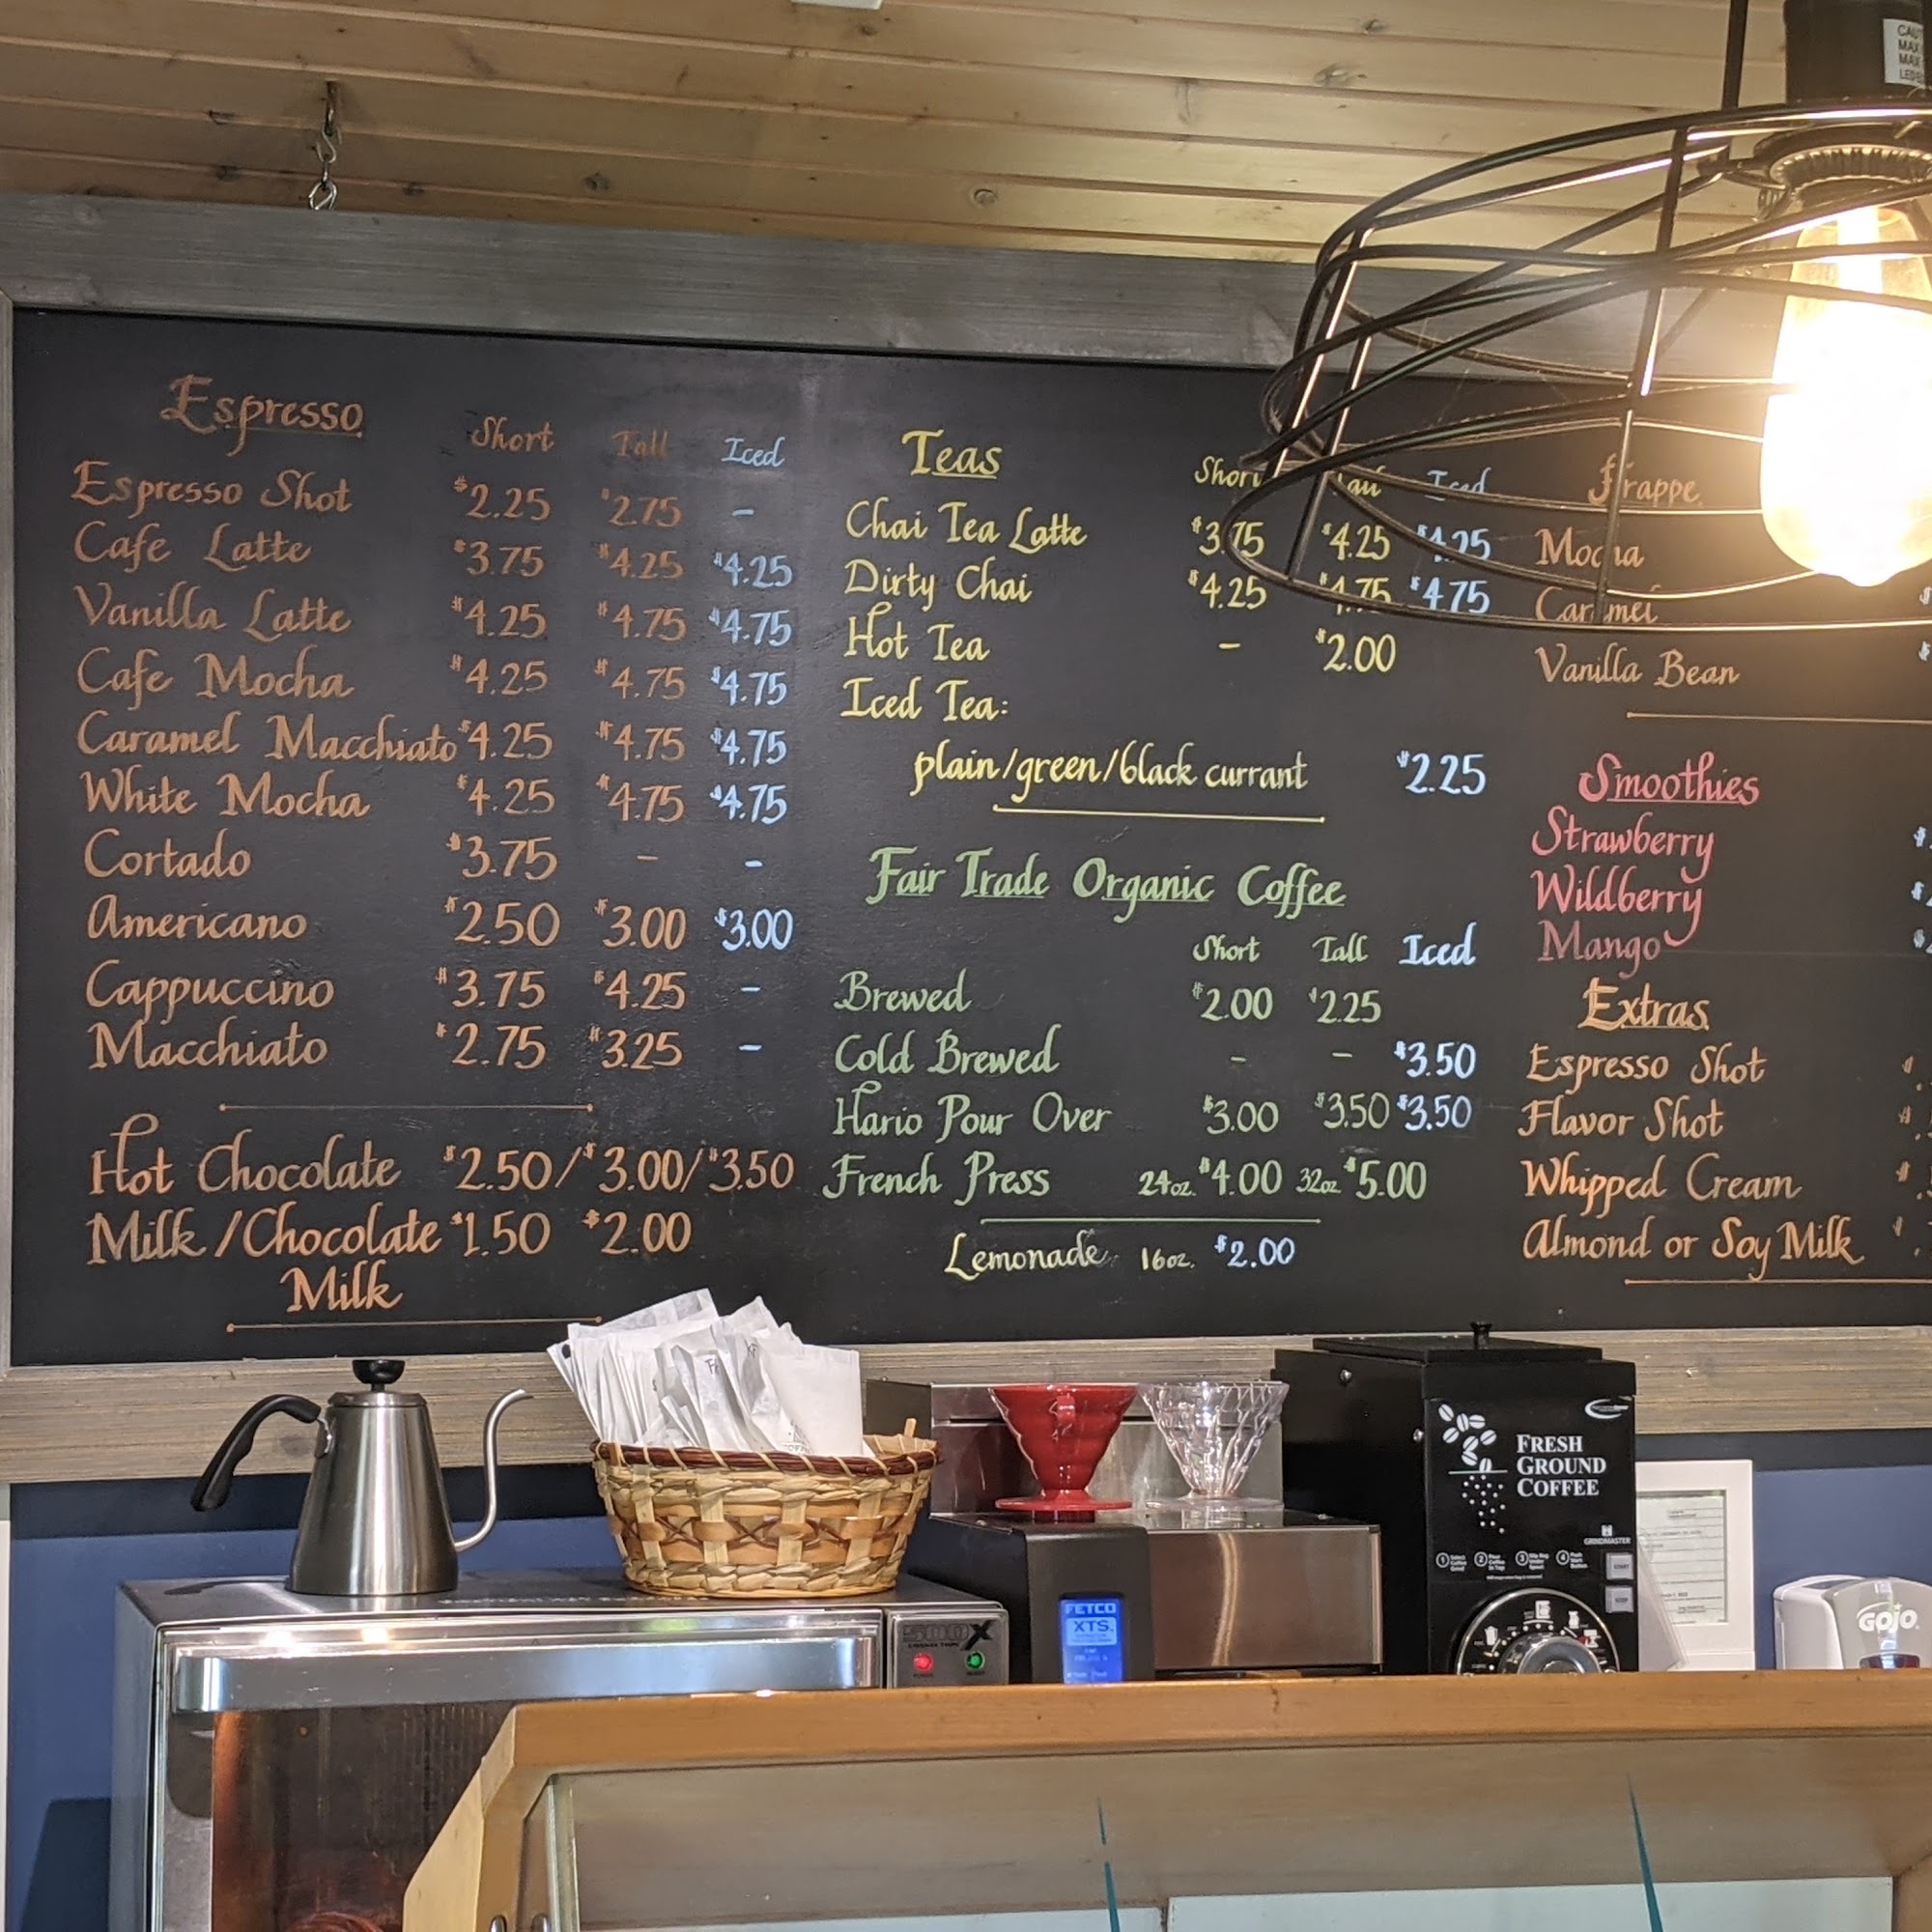 Espresso
Short Tall Iced
Espresso Shot $2.25 $2.75 -
Cafe Latte $3.75 $4.25 $4.25
Vanilla Latte $4.25 $4.75 $4.75
Cafe Mocha $4.25 $4.75 $4.75
Caramel Macchiato $4.25 $4.75 $4.75
White Mocha $4.25 $4.75 $4.75
Cortado $3.75 - -
Americano $2.50 $3.00 $3.00
Cappuccino $3.75 $4.25 -
Macchiato $2.75 $3.25 -
Hot Chocolate $2.50/$3.00/$3.50
Milk/Chocolate $1.50 $2.00
Milk
Teas
Short Tall Iced
Chai Tea Latte $3.75 $4.25 $4.25
Dirty Chai $4.25 $4.75 $4.75
Hot Tea - $2.00
Iced Tea:
plain/green/black currant $2.25
Fair Trade Organic Coffee
Short Tall Iced
Brewed $2.00 $2.25
Cold Brewed - - $3.50
Hario Pour Over $3.00 $3.50 $3.50
French Press 24oz. $4.00 32oz $5.00
Lemonade 16oz. $2.00
Frappe
Mocha
Caramel
Vanilla Bean
Smoothies
Strawberry
Wildberry
Mango
Extras
Espresso Shot
Flavor Shot
Whipped Cream
Almond or Soy Milk
FRESH
GROUND
COFFEE
GRINDMASTER
FETCO
XTS
500X
GOJO